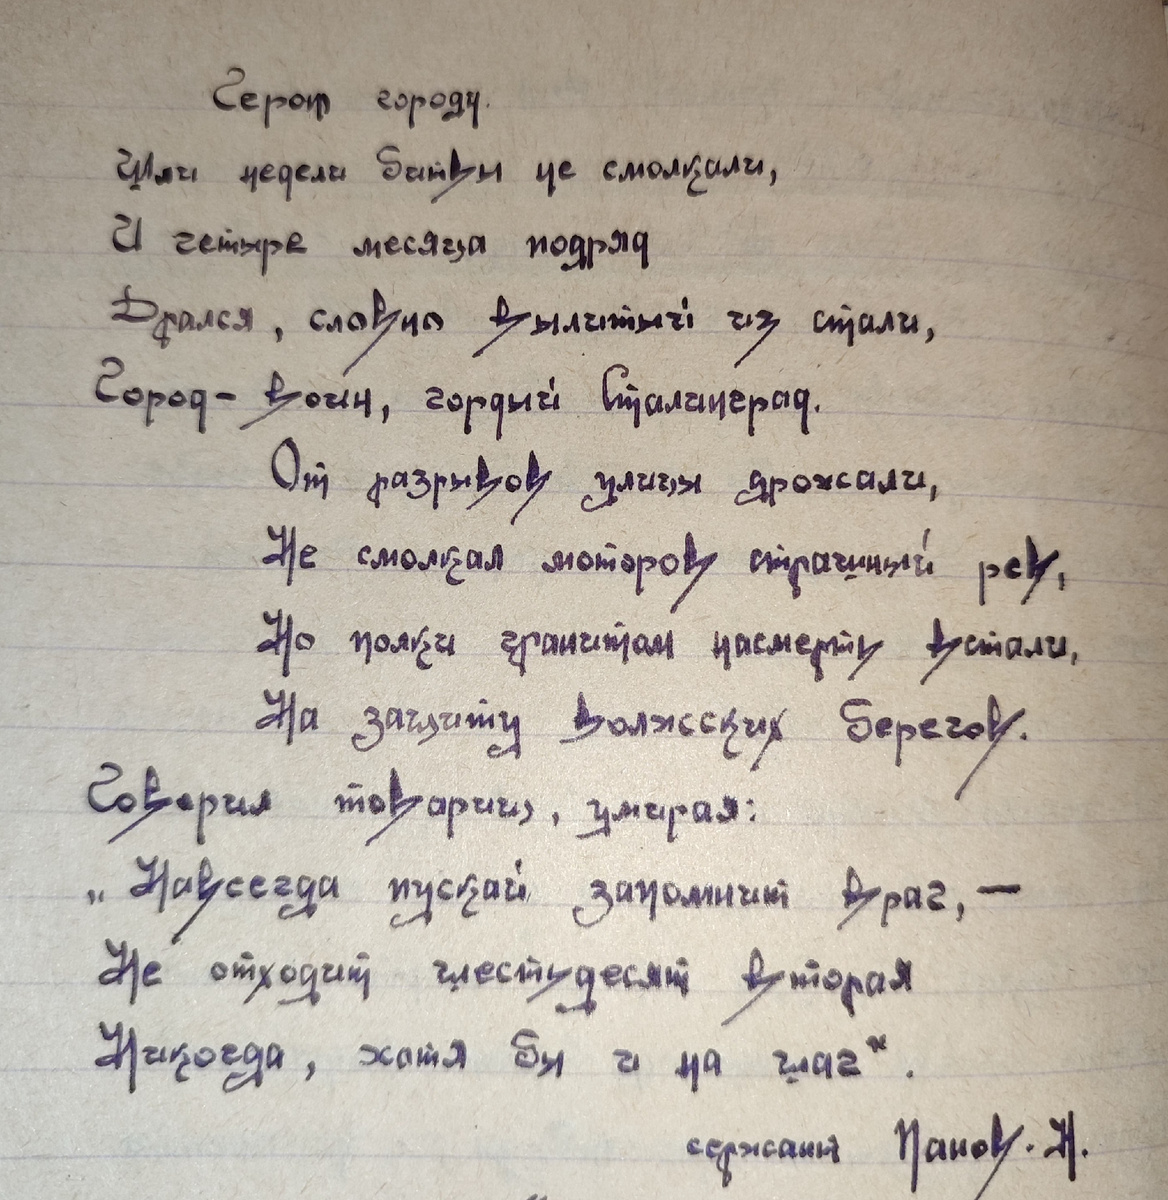 Герою городу.
Шли недели битвы не смолкали,
И четыре месяца подряд
Дрался, словно вылитый из стали,
Город - воин, гордый Сталинград.
От разрывов улицы дрожали,
Не смолкал моторов страшный рев,
Но полки гранитом насмерть встали,
На защиту волжсских берегов.
Говорил товарищ, умирая:
„Навсегда пускай запомнит враг, —
Не отходит шестьдесят вторая
Никогда, хотя бы и на шаг".
сержант Панов. Н.